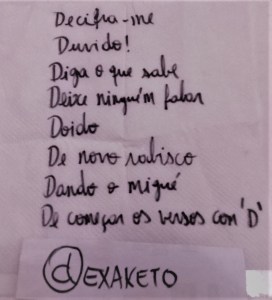 Decifra-me
Duvido!
Diga o que sabe
Deixe ninguém falar
Doido
De novo rabisco
Dando o migué
De começar os versos com 'D'
dEXAKETO